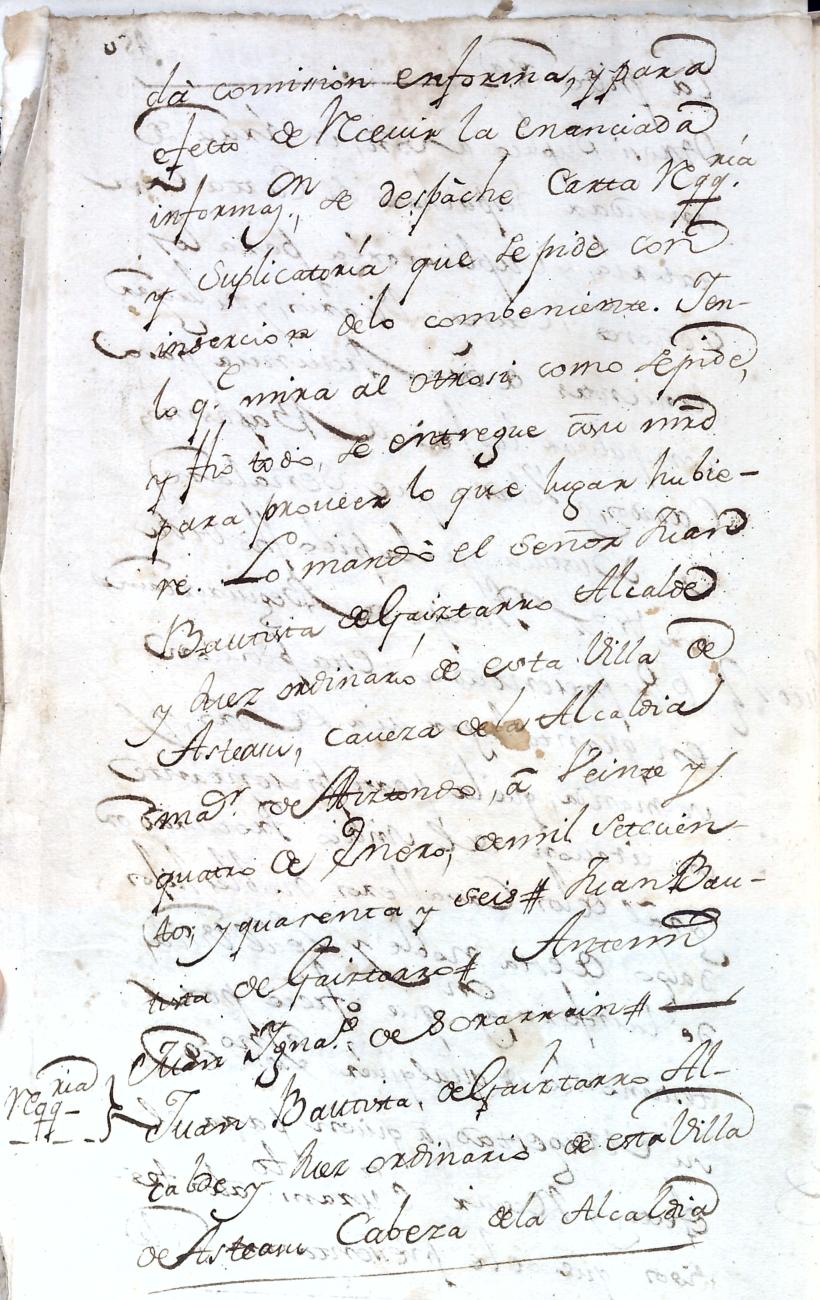 dà comision enforma, y para
efecto de Rcevir la enunciada
informaz.on, se despàche Carta Rqq.ria
y Suplicatoria que se pide con
insercion delo combeniente. Yen-
lo q.e mira al otrosi como sepide,
y fho todo, se entregue asu mrd
para proveer lo que lugar hubie-
re. Lo mandò el señor Juan
Bautista de Gaiztarro Alcalde
y Juez ordinario de esta Villa de
Asteasu, caveza dela Alcaldia
m.or de Aiztondo, a Veinte y
quatro de Enero, demil setecien-
tos, y quarenta y seis # Juan Bau-
tista de Gaiztarro # Antemi
Juan Ygna.o de Sorarrain #
Rqq-ria
Juan Bautista, de Gaiztarro Al-
calde y Juez ordinario de esta Villa
de Asteasu Cabeza dela Alcaldia